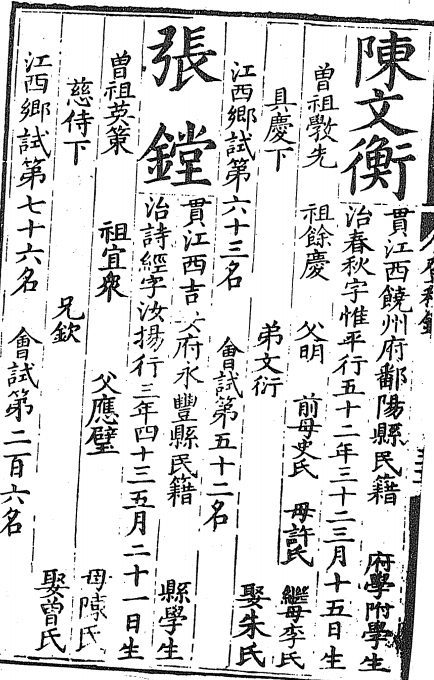 陳文衡
貫江西饒州府鄱陽縣民籍 府學附學生
治春秋字惟平行五十二年三十二三月十五日生
曾祖敩先 祖餘慶 父明 前母史氏 母許氏 繼母李氏
具慶下 弟文衍 娶朱氏
江西鄉試第六十三名 會試第五十二名
張鏜
貫江西吉 府永豐縣民籍 縣學生
治詩經字汝揚行三年四十三五月二十一日生
曾祖英策 祖宜衆 父應璧 母陳氏
慈侍下 兄欽 娶曾氏
江西鄉試第七十六名 會試第二百六名